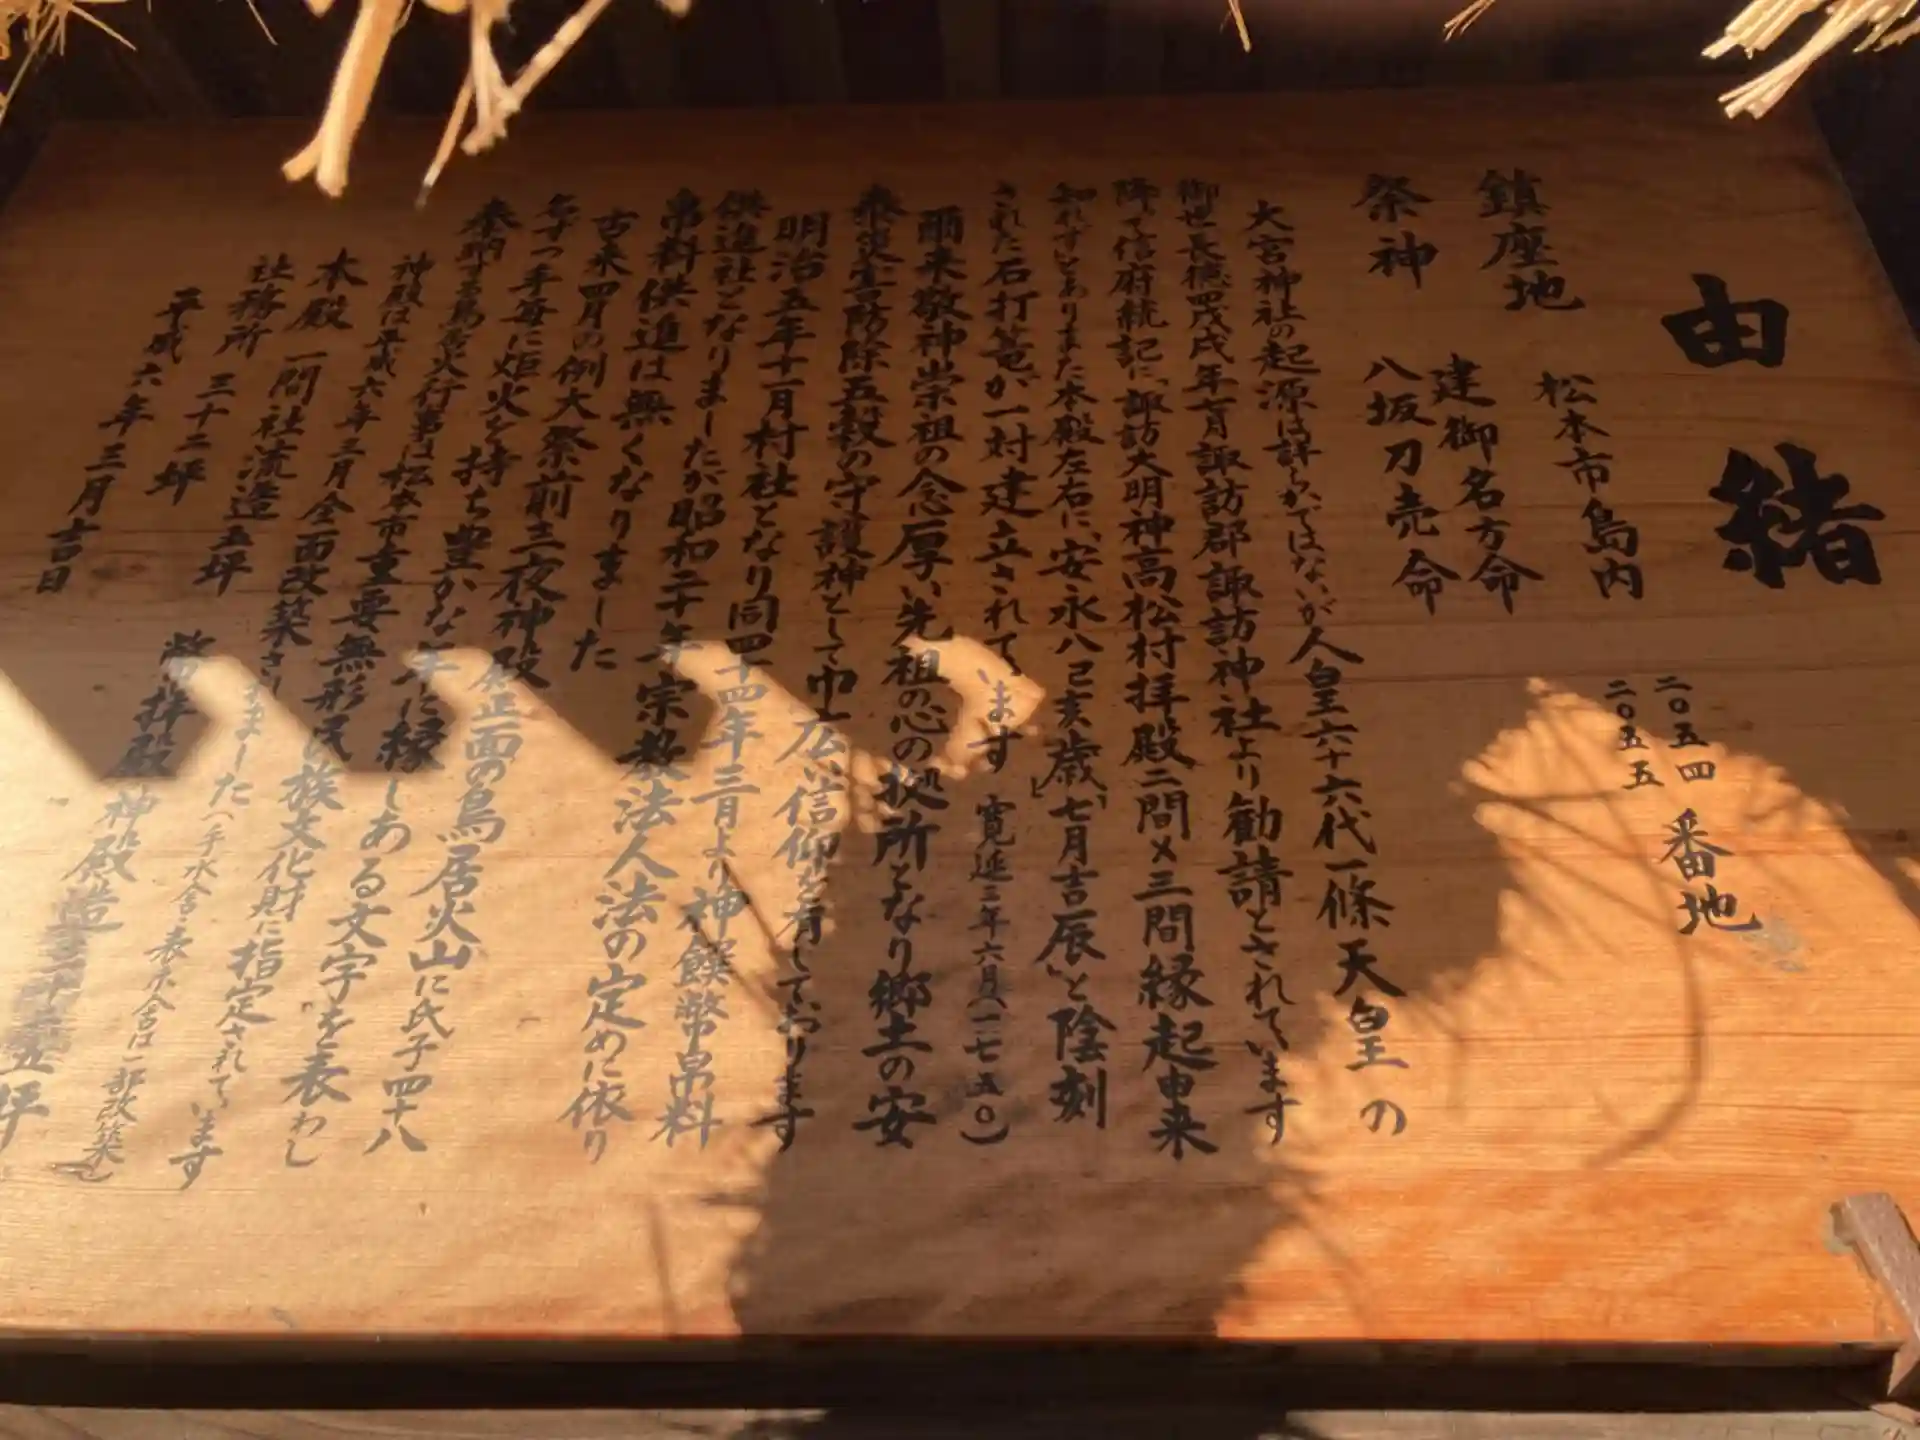 由緒
鎮座地 松本市島内 二〇五四 番地
二〇五五
祭神 建御名方命
八坂刀売命
大宮神社の起源は詳らかではないが人皇六十六代一條天皇の
御世長徳四戊戌年一月諏訪郡諏訪神社より勧請とされています
降て信府統記に、諏訪大明神高松村拝殿二間×三間縁起由来
知れず」とありまた本殿左右に、安永八己亥歳」七月吉辰」と陰刻
された石打篭が一対建立されています 寛延三年六月(一七五〇)
爾来敬神崇祖の念厚い先祖の心の拠所となり郷土の安
泰災害防除五穀の守護神として 広い信仰を有しております
明治五年十一月村社となり同四十四年三月より神饌幣帛料
供進社となりましたが昭和二十年宗教法人法の定めに依り
帛料供進は無くなりました
古来四月の例大祭前三夜神殿正面の鳥居火山に氏子四十八
名十つ手毎に炬火を持ち豊かな年に縁しある文字を表わし
奉納する鳥居火行事は松本市重要無形民俗文化財に指定されています
神殿は平成六年三月全面改築されました(手水舎・表示舎は一部改築)
本殿 一間社流造 五坪 幣拝殿 神殿造 三十五坪
社務所 三十二坪
平成六年三月吉日